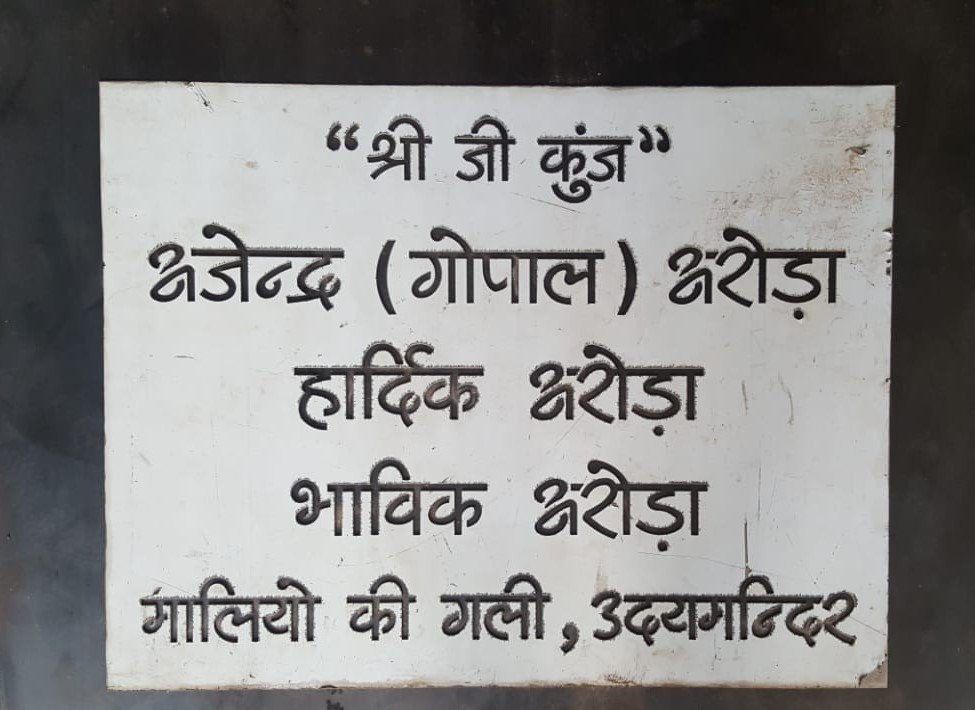 “श्री जी कुंज”
अजेन्द्र (गोपाल) अरोड़ा
हार्दिक अरोड़ा
भाविक अरोड़ा
मालियो की गली, उदयमन्दिर